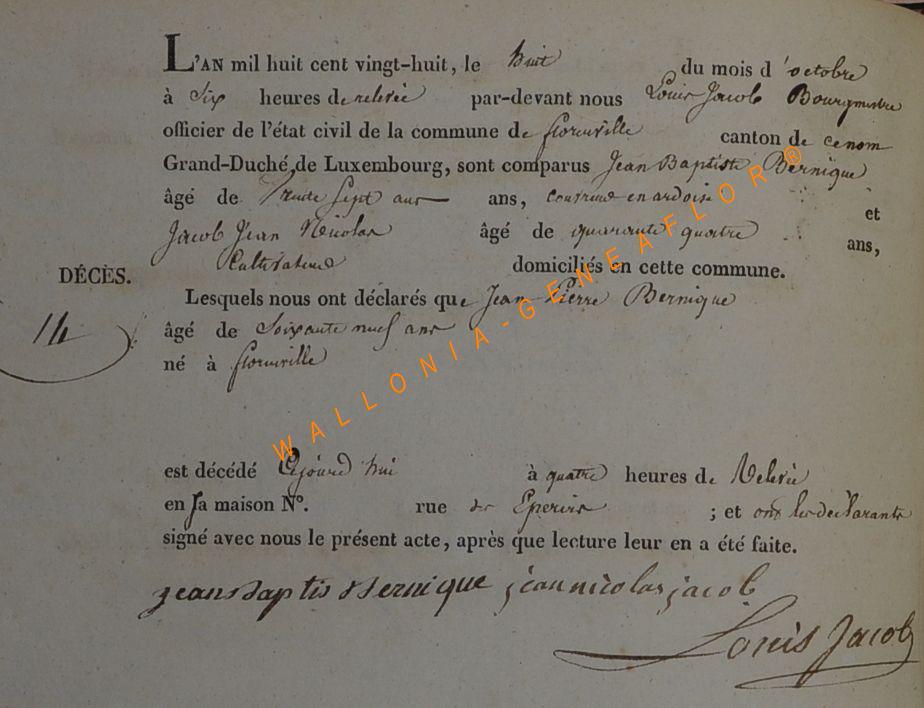 L'AN mil huit cent vingt-huit, le huit du mois d'octobre
à six heures de relevée par-devant nous Louis Jacob Bourgmestre
officier de l'état civil de la commune de florenville canton de
Grand-Duché de Luxembourg, sont comparus Jean Baptiste Bernique
âgé de Trente Sept ans ans, couvreur en ardoise et
Jacob Jean Nicolas âgé de quarante quatre ans,
Cultivateur domiciliés en cette commune.
DÉCÈS.
Lesquels nous ont déclarés que Jean Pierre Bernique
14
âgé de Soixante neuf ans
né à florenville
WALLONIA-GENEAFLOR®
est décédé à quatre heures de Relevée
en sa maison N°. rue ; et ont les declarants
signé avec nous le présent acte, après que lecture leur en a été faite.
jean Baptis Bernique jean nicolas jacob
Louis Jacob